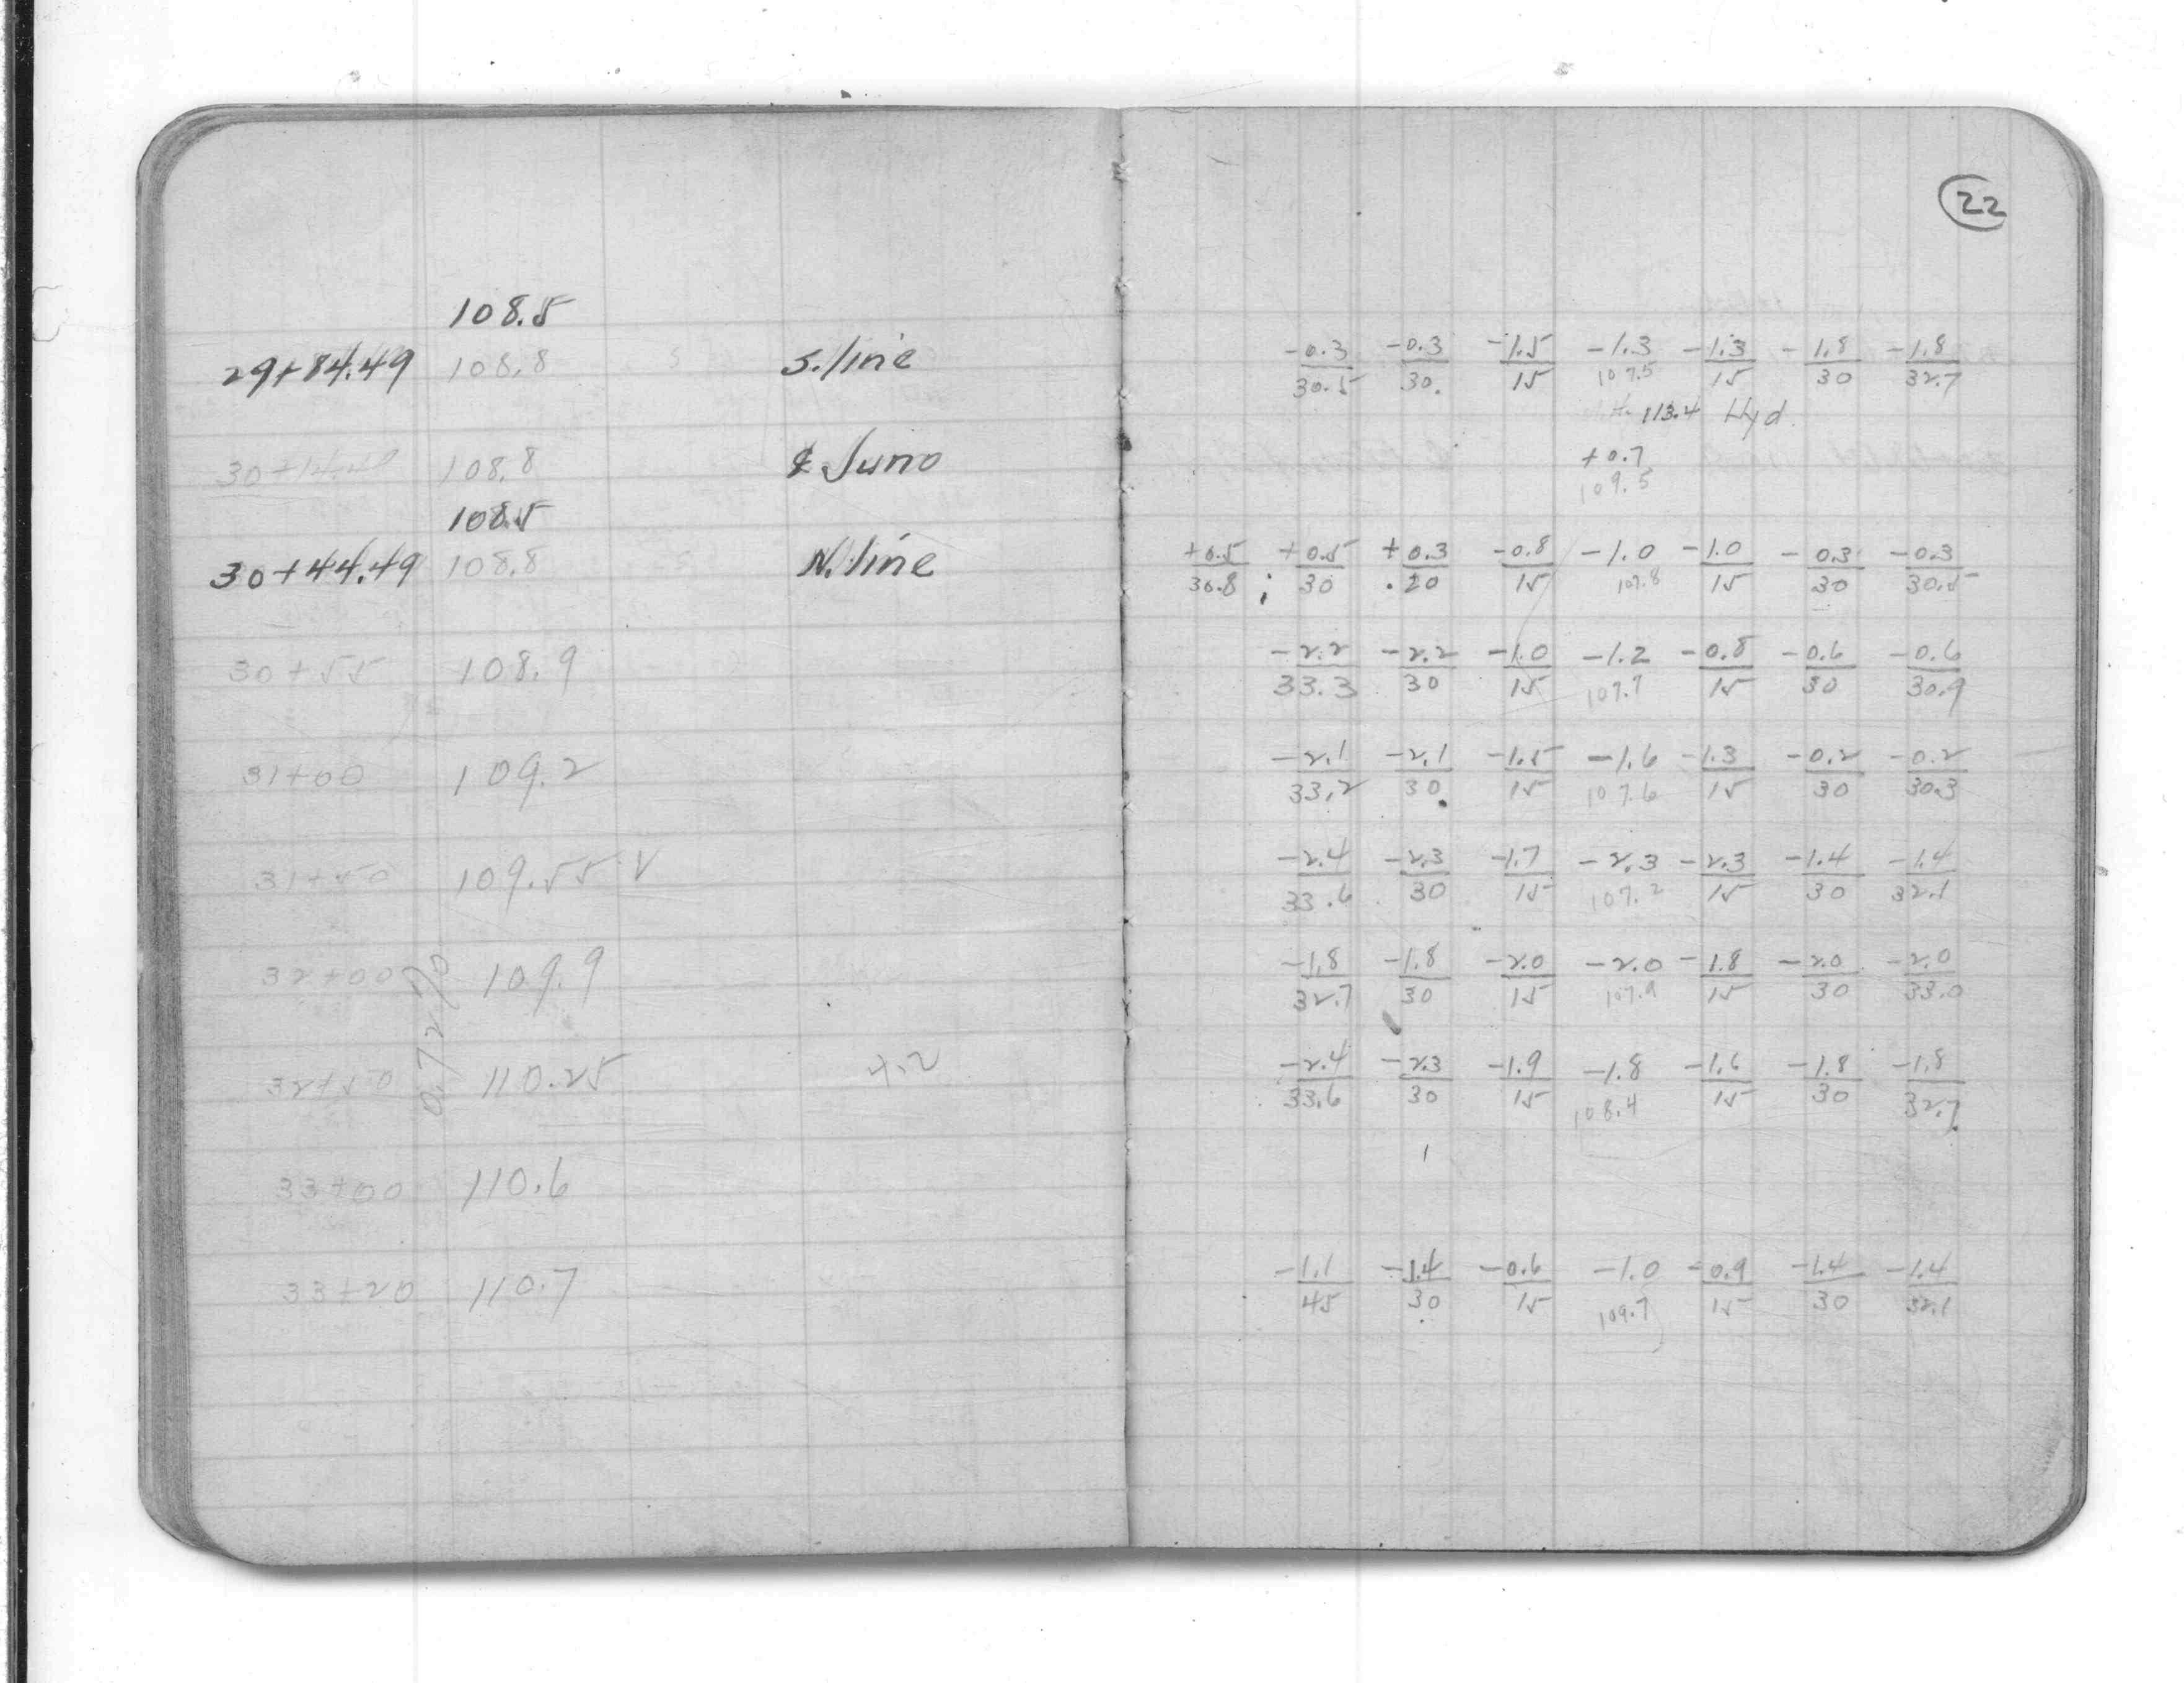 22
108.5
29+84.49 108.8 S. line
-0.3/30.5 -0.3/30. -1.5/15 -1.3 107.5 -1.3/15 -1.8/30 -1.8/32.7
113.4 Hyd.
30+14.49 108.8 ℄ Juno +0.7 109.5
108.5
30+44.49 108.8 N. line
+0.5/30.8 +0.5/30 +0.3/20 -0.8/15 -1.0 107.8 -1.0/15 -0.3/30 -0.3/30.5
30+55 108.9
-2.2/33.3 -2.2/30 -1.0/15 -1.2 107.7 -0.8/15 -0.6/30 -0.6/30.9
31+00 109.2
-2.1/33.2 -2.1/30 -1.5/15 -1.6 107.6 -1.3/15 -0.2/30 -0.2/30.3
31+50 109.55 V
-2.4/33.6 -2.3/30 -1.7/15 -2.3 107.2 -2.3/15 -1.4/30 -1.4/32.1
32+00 109.9
-1.8/32.7 -1.8/30 -2.0/15 -2.0 107.9 -1.8/15 -2.0/30 -2.0/33.0
0.72%
32+50 110.25 4.2
-2.4/33.6 -2.3/30 -1.9/15 -1.8 108.4 -1.6/15 -1.8/30 -1.8/32.7
33+00 110.6
33+20 110.7
-1.1/45 -1.4/30 -0.6/15 -1.0 109.7 -0.9/15 -1.4/30 -1.4/32.1